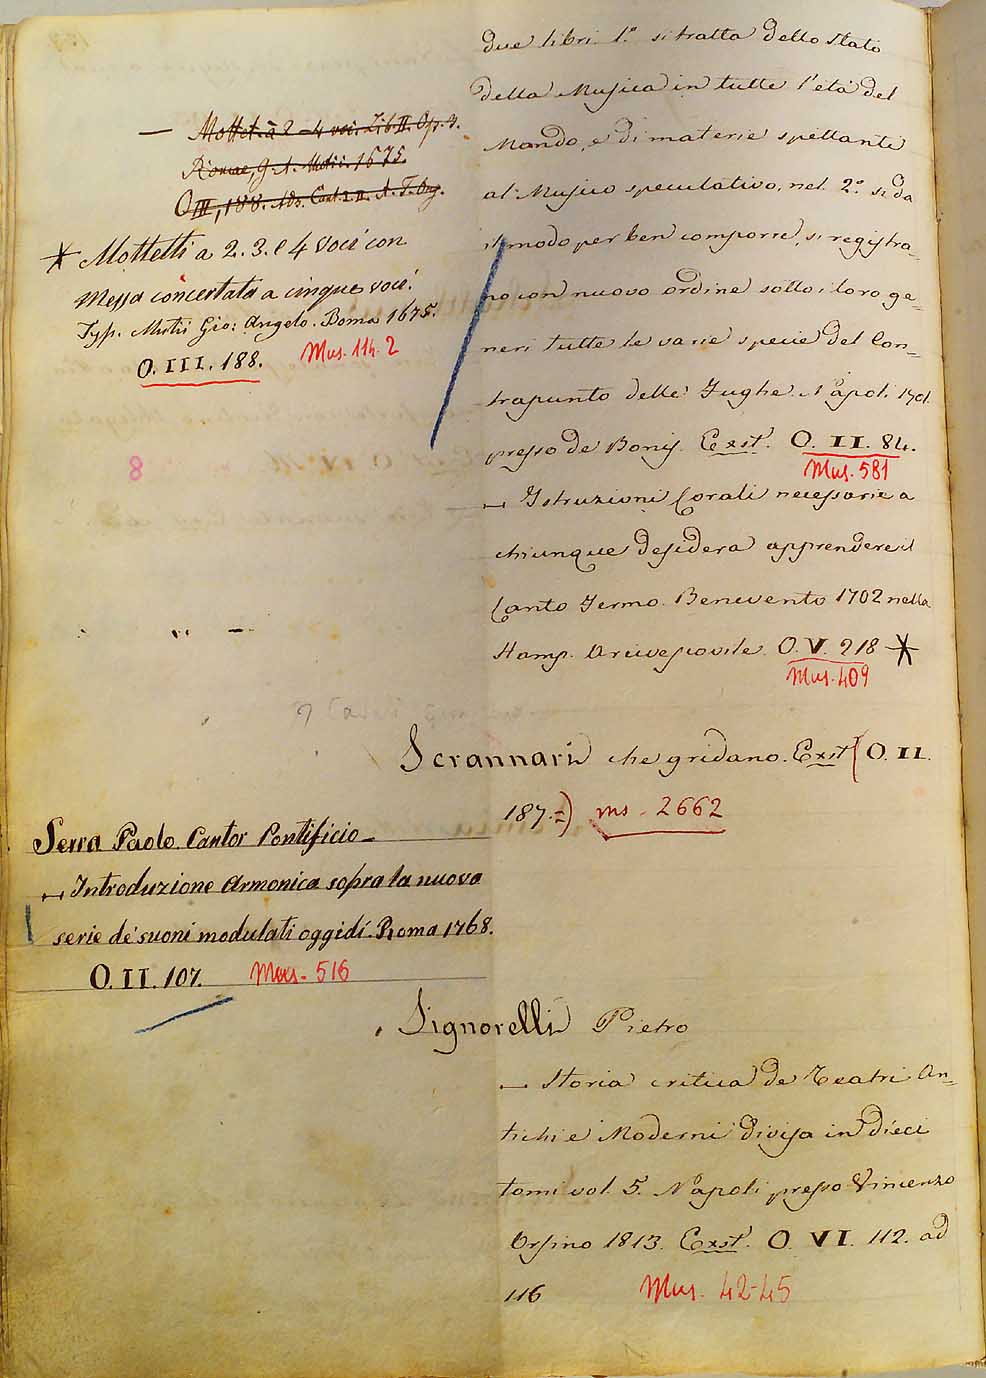 due libri. 1.º si tratta dello Stato
della Musica in tutte l'età del
Mondo, e di materie spettante
al Musico speculativo, nel 2.º si da
il modo per ben comporre, si registra-
no con nuovo ordine sotto i loro ge-
neri tutte le varie specie del Con-
trapunto delle Fughe. Napoli 1701.
presso de Bonis. Exst. O. II. 84.
Mus. 581
— Istruzioni Corali necessarie a
chiunque desidera apprendere il
Canto Fermo. Benevento 1702 nella
Stamp. Arcivescovile. O. V. 218 *
Mus. 409
— Mottet. a 2-4 voc. Lib. II. Op.
Romae, G. A. Mutii. 1675.
O III, 188.
* Mottetti a 2. 3. e 4 voci con
Messa concertata a cinque voci.
Typ. Mutii Gio: Angelo. Roma 1675.
O. III. 188. Mus. 114. 2
8
Scrannari che gridano. Exst (O. II.
187.=) ms. 2662
Serra Paolo Cantor Pontificio_
— Introduzione Armonica sopra la nuova
serie de' suoni modulati oggidí. Roma 1768.
O. II. 107. Mus. 516
Signorelli Pietro
— Storia critica de Teatri An-
tichi e Moderni divisa in dieci
tomi vol. 5. Napoli presso Vincenzo
Orsino 1813. Exst. O. VI. 112. ad
116 Mus. 42-45